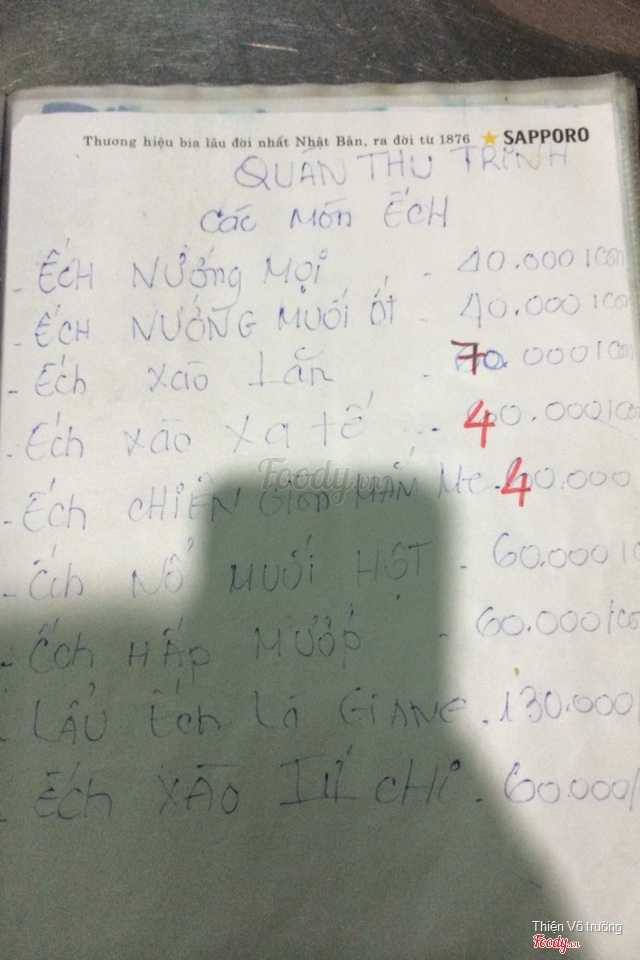 Thương hiệu bia lâu đời nhất Nhật Bản, ra đời từ 1876 SAPPORO
QUÁN THU TRINH
Các Món ẾCH
- ẾCH NƯỚNG MỌI - 40.000/con
- ẾCH NƯỚNG MUỐI ỚT - 40.000/con
- Ếch xào Lăn - 70.000/con
- Ếch xào xa tế - 40.000/con
- Ếch CHIÊN GIÒN MẮM Me - 40.000
- Ếch NỔ MUỐI HỘT - 60.000/c
- Ếch HẤP MƯỚP - 60.000/con
- LẨU Ếch Lá GIANG - 130.000/
- Ếch XÀO TỨ CHI - 60.000/
Foody.vn
Thiên Võ trường
Foody.vn